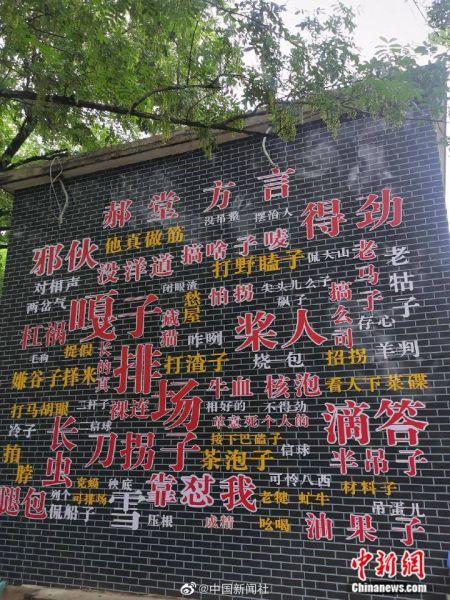 郝堂方言
没吊整 摆治人
邪伙 他真做筋 得劲
对相声 没洋道 搞啥子唛 侃大山 老马子 老牯子
两岔气 打野瞌子
杠祸 嘎子 闭眼渣 怕拐 尖头儿 公子 搞么司
瓢子 仔心
藏猫 咋咧 浆人
毛狗 长的真排场 打渣子 烧包 招拐 羊判
嫌谷子择米 牛血 核泡 看人下菜碟
打马胡骝 二杆子 裸连 相好的 不得劲 滴答
冷子 信球 草意死个人的
长虫 刀拐子 接下巴磕子 信球 半吊子
拍脖 茶泡子 可怜八西 材料子
腿包 列个 克蟆 秧底 雪 靠怼我 老犍 虹牛 吊蛋儿
侃船子 可排场 压根 成精 吆喝 油果子
中新网
Chinanews.com
@中国新闻社